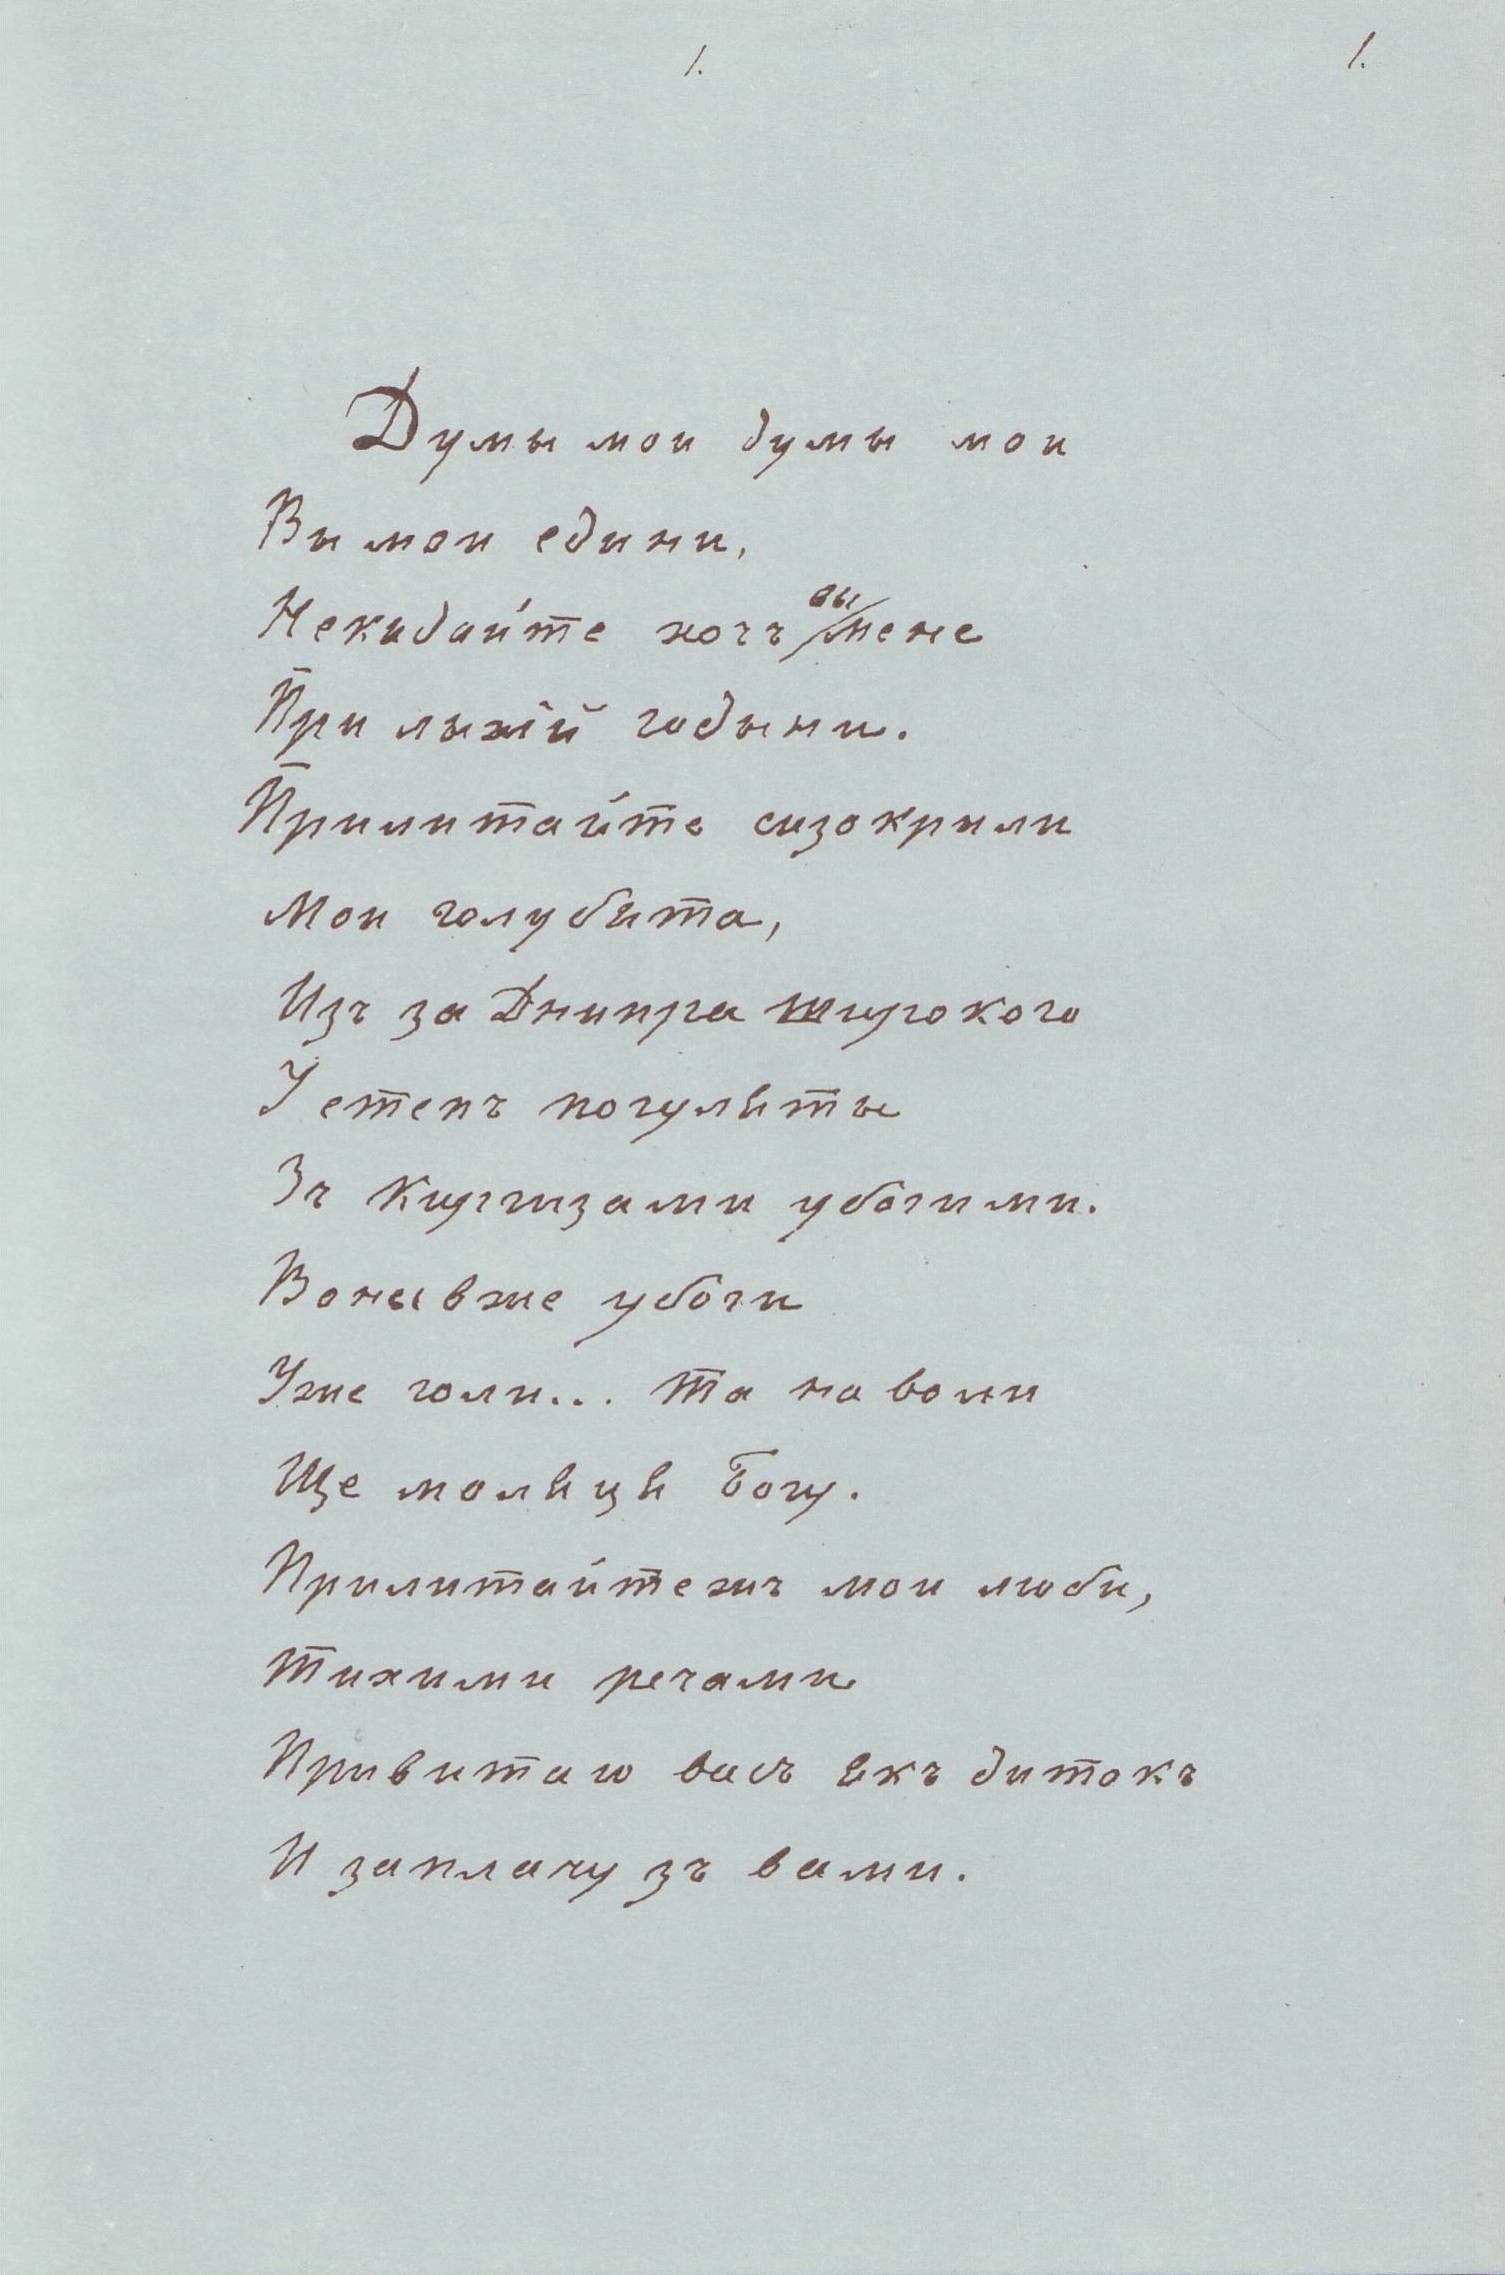 1. 1.
Думы мои думы мои
Вы мои едини,
Некидайте хочъ вы мене
При лыхій годыни.
Прилитайте сизокрили
Мои голубята,
Изъ за Днипра широкого
У степъ погуляты
Зъ Киргизами убогими.
Воны вже убоги
Уже голи... Та на воли
Ще моляця Богу.
Прилитайтежъ мои люби,
Тихими речами
Привитаю васъ якъ дитокъ
И заплачу зъ вами.